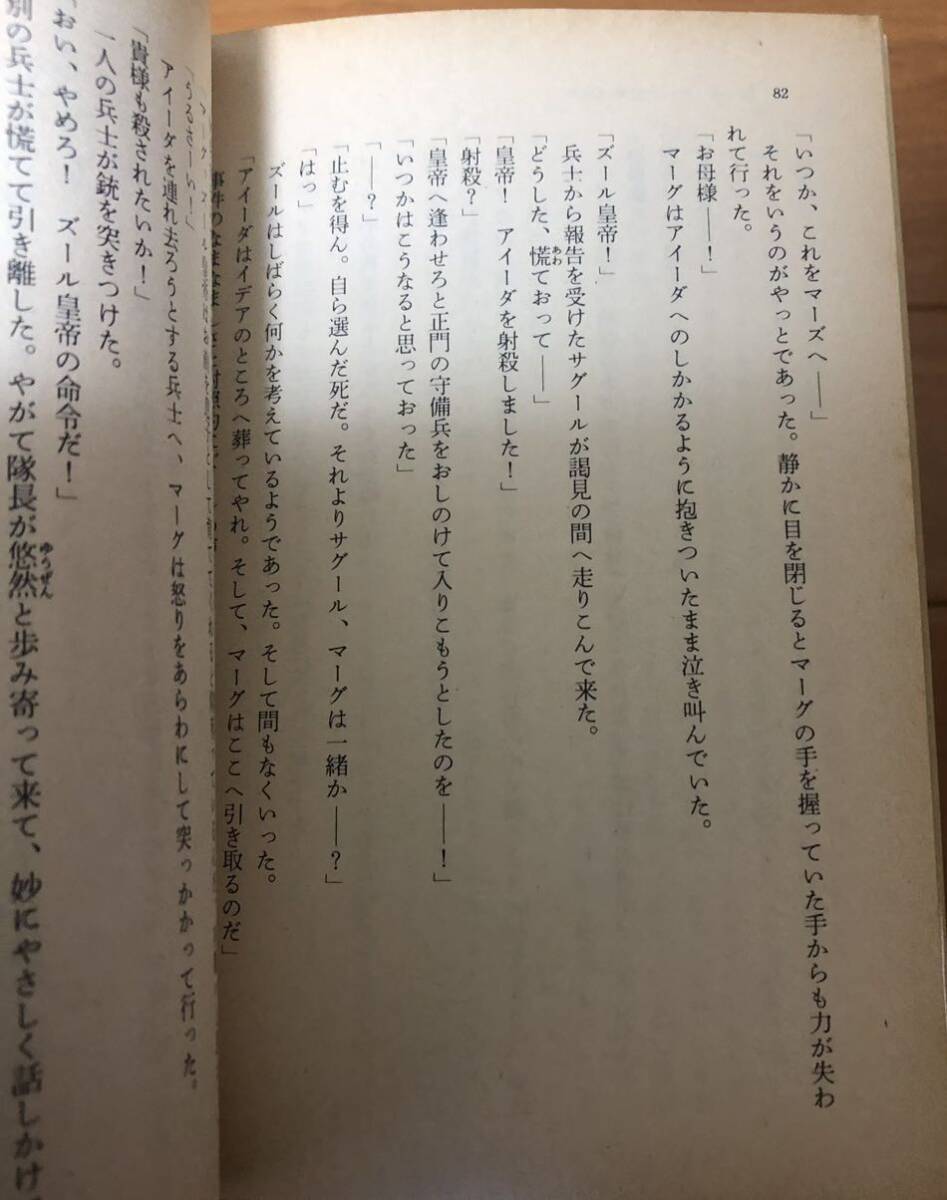 82
「いつか、これをマーズへ――」
それをいうのがやっとであった。静かに目を閉じるとマーグの手を握っていた手からも力が失わ
れて行った。
「お母様――！」
マーグはアイーダへのしかかるように抱きついたまま泣き叫んでいた。
「ズール皇帝！」
兵士から報告を受けたサグールが謁見の間へ走りこんで来た。
「どうした、慌ておって――」
あわ
「皇帝！　アイーダを射殺しました！」
「射殺？」
「皇帝へ逢わせろと正門の守備兵をおしのけて入りこもうとしたのを――！」
「いつかはこうなると思っておった」
「――？」
「止むを得ん。自ら選んだ死だ。それよりサグール、マーグは一緒か――？」
「はっ」
ズールはしばらく何かを考えているようであった。そして間もなくいった。
「アイーダはイデアのところへ葬ってやれ。そして、マーグはここへ引き取るのだ」
「うるさーい！」
アイーダを連れ去ろうとする兵士へ、マーグは怒りをあらわにして突っかかって行った。
「貴様も殺されたいか！」
一人の兵士が銃を突きつけた。
「おい、やめろ！　ズール皇帝の命令だ！」
別の兵士が慌てて引き離した。やがて隊長が悠然と歩み寄って来て、妙にやさしく話しかけ
ゆうぜん